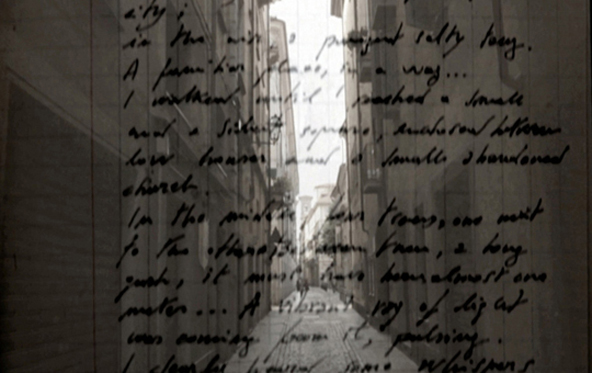 city;
in the air a pungent salty tang.
A familiar place, in a way...
I walked until I reached a small
and a silent square, enclosed between
low houses and a small abandoned
church.
In the middle, four trees, one next
to the other. Between them, a long
gash, it must have been almost one
meter... A vibrant ray of light
was coming from it, pulsing.
I clearly heard some whispers